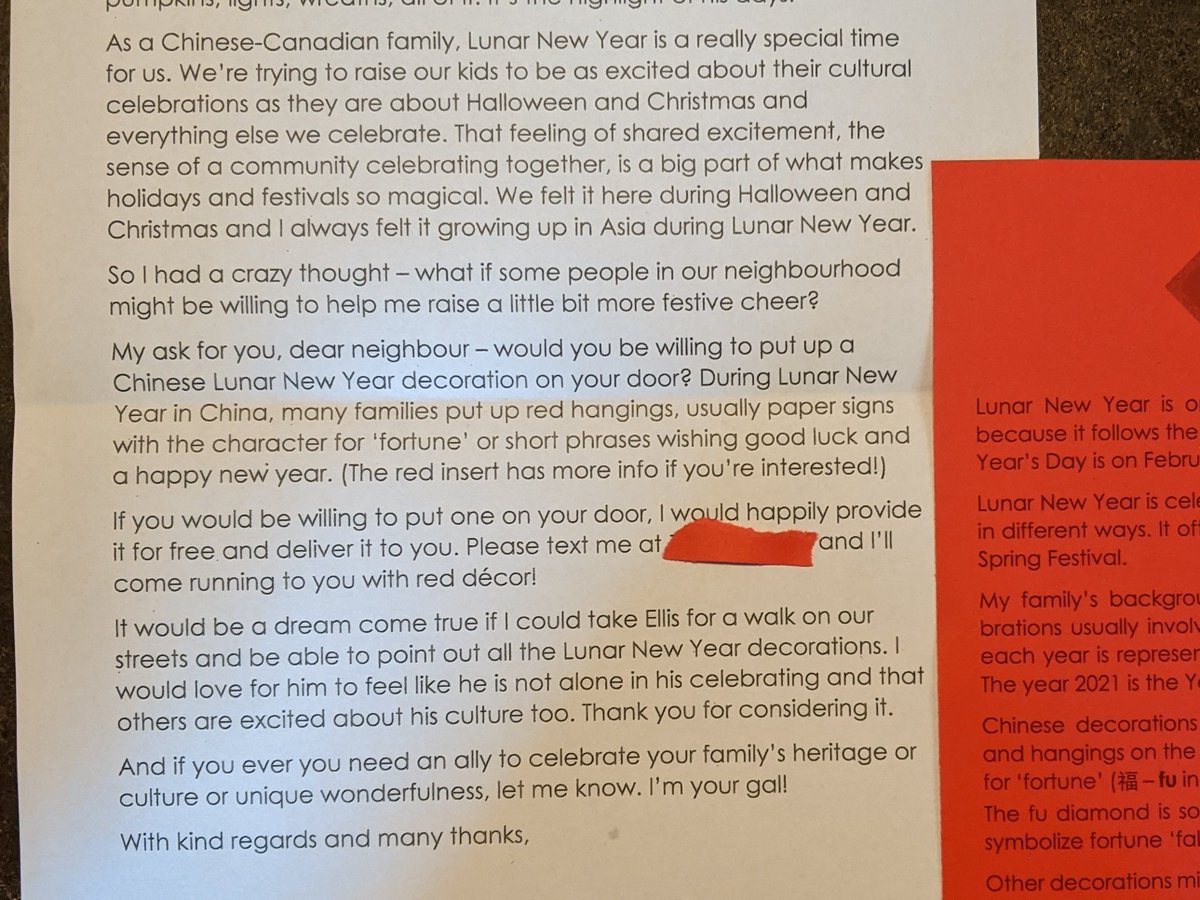 pumpkins, lights, wreaths, all of it. It's the highlight of his days.
As a Chinese-Canadian family, Lunar New Year is a really special time
for us. We're trying to raise our kids to be as excited about their cultural
celebrations as they are about Halloween and Christmas and
everything else we celebrate. That feeling of shared excitement, the
sense of a community celebrating together, is a big part of what makes
holidays and festivals so magical. We felt it here during Halloween and
Christmas and I always felt it growing up in Asia during Lunar New Year.
So I had a crazy thought – what if some people in our neighbourhood
might be willing to help me raise a little bit more festive cheer?
My ask for you, dear neighbour – would you be willing to put up a
Chinese Lunar New Year decoration on your door? During Lunar New
Year in China, many families put up red hangings, usually paper signs
with the character for 'fortune' or short phrases wishing good luck and
a happy new year. (The red insert has more info if you're interested!)
If you would be willing to put one on your door, I would happily provide
it for free and deliver it to you. Please text me at and I'll
come running to you with red décor!
It would be a dream come true if I could take Ellis for a walk on our
streets and be able to point out all the Lunar New Year decorations. I
would love for him to feel like he is not alone in his celebrating and that
others are excited about his culture too. Thank you for considering it.
And if you ever you need an ally to celebrate your family's heritage or
culture or unique wonderfulness, let me know. I'm your gal!
With kind regards and many thanks,
Lunar New Year is
because it follows the
Year's Day is on
Lunar New Year is
in different ways. It
Spring Festival.
My family's
brations usually
each year is
The year 2021 is the
Chinese decorations
and hangings on the
for 'fortune' (福 – fu in
The fu diamond is
symbolize fortune
Other decorations